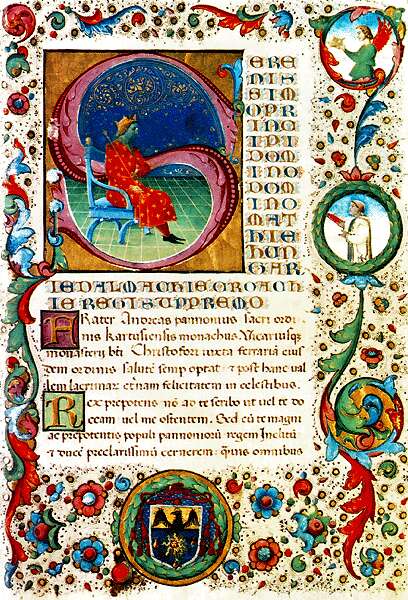 S
EREN
NISS
SIM
OPR
INCI
PI DOM
INO DO
MINO
MAT
THIE
HUN
GAR
IE DALMACHIE CROACH
IE REGI SVPPREMO
FRater Andreas pannonius sacri ordi
nis kartusiensis monachus Vicariusque
monasterii bti Christofori iuxta ferrariam eius
dem ordinis salute semp optat et post hanc val
lem lacrimar eternam felicitatem in celestibus.
Rex prepotens no ad te scribo ut vel te do
ceam vel me ostentem. Sed cu te magni
ac prepotentis populi pannonioru regem Inclitu
et voce preclarissimu cernerem. quius omnibus